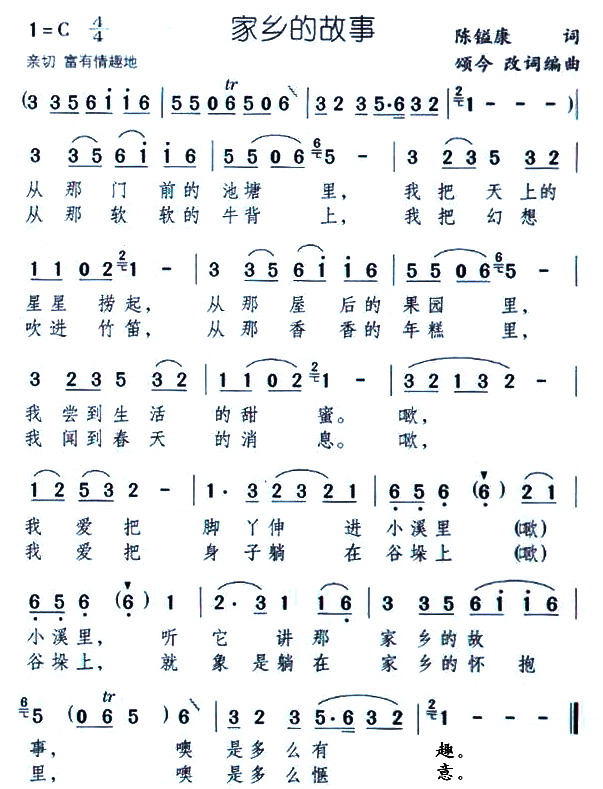 家乡的故事
1=C 4/4
陈镒康 词
亲切 富有情趣地
颂今 改词编曲
(3 3561i6 | 5506506 | 32 35·632 | 21 - - -) |
3 3561i6 | 5506 65 - | 3 235 32 |
从那门前的池塘里，我把天上的
从那软软的牛背上，我把幻想
1102 21 - | 3 3561i6 | 5506 65 - |
星星捞起，从那屋后的果园里，
吹进竹笛，从那香香的年糕里，
3 325 32 | 1102 21 - | 32132 - - |
我尝到生活的甜蜜。噷，
我闻到春天的消息。噷，
12532 - | 1· 32321 | 656 (6) 21 |
我爱把脚丫伸进小溪里(噷)
我爱把身子躺在谷垛上(噷)
656 (6) 1 | 2· 3116 | 3 3561i6 |
小溪里，听它讲那家乡的故
谷垛上，就象是躺在家乡的怀抱
65 (065) 6 | 32 35·632 | 21 - - - ||
事，噢是多么有趣。
里，噢是多么惬意。